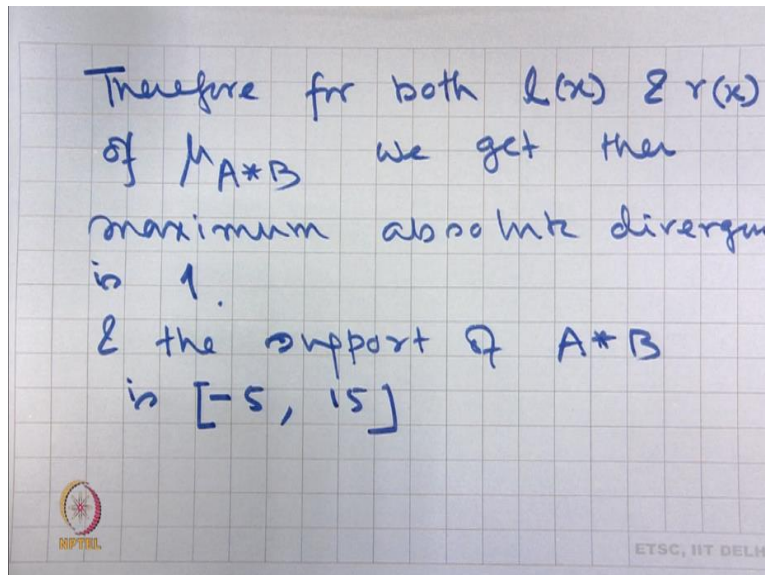 Therefore for both l(x) & r(x)
of μ_{A*B} we get then
maximum absolute divergen
is 1.
& the support of A*B
is [-5, 15]
NPTEL
ETSC, IIT DELH